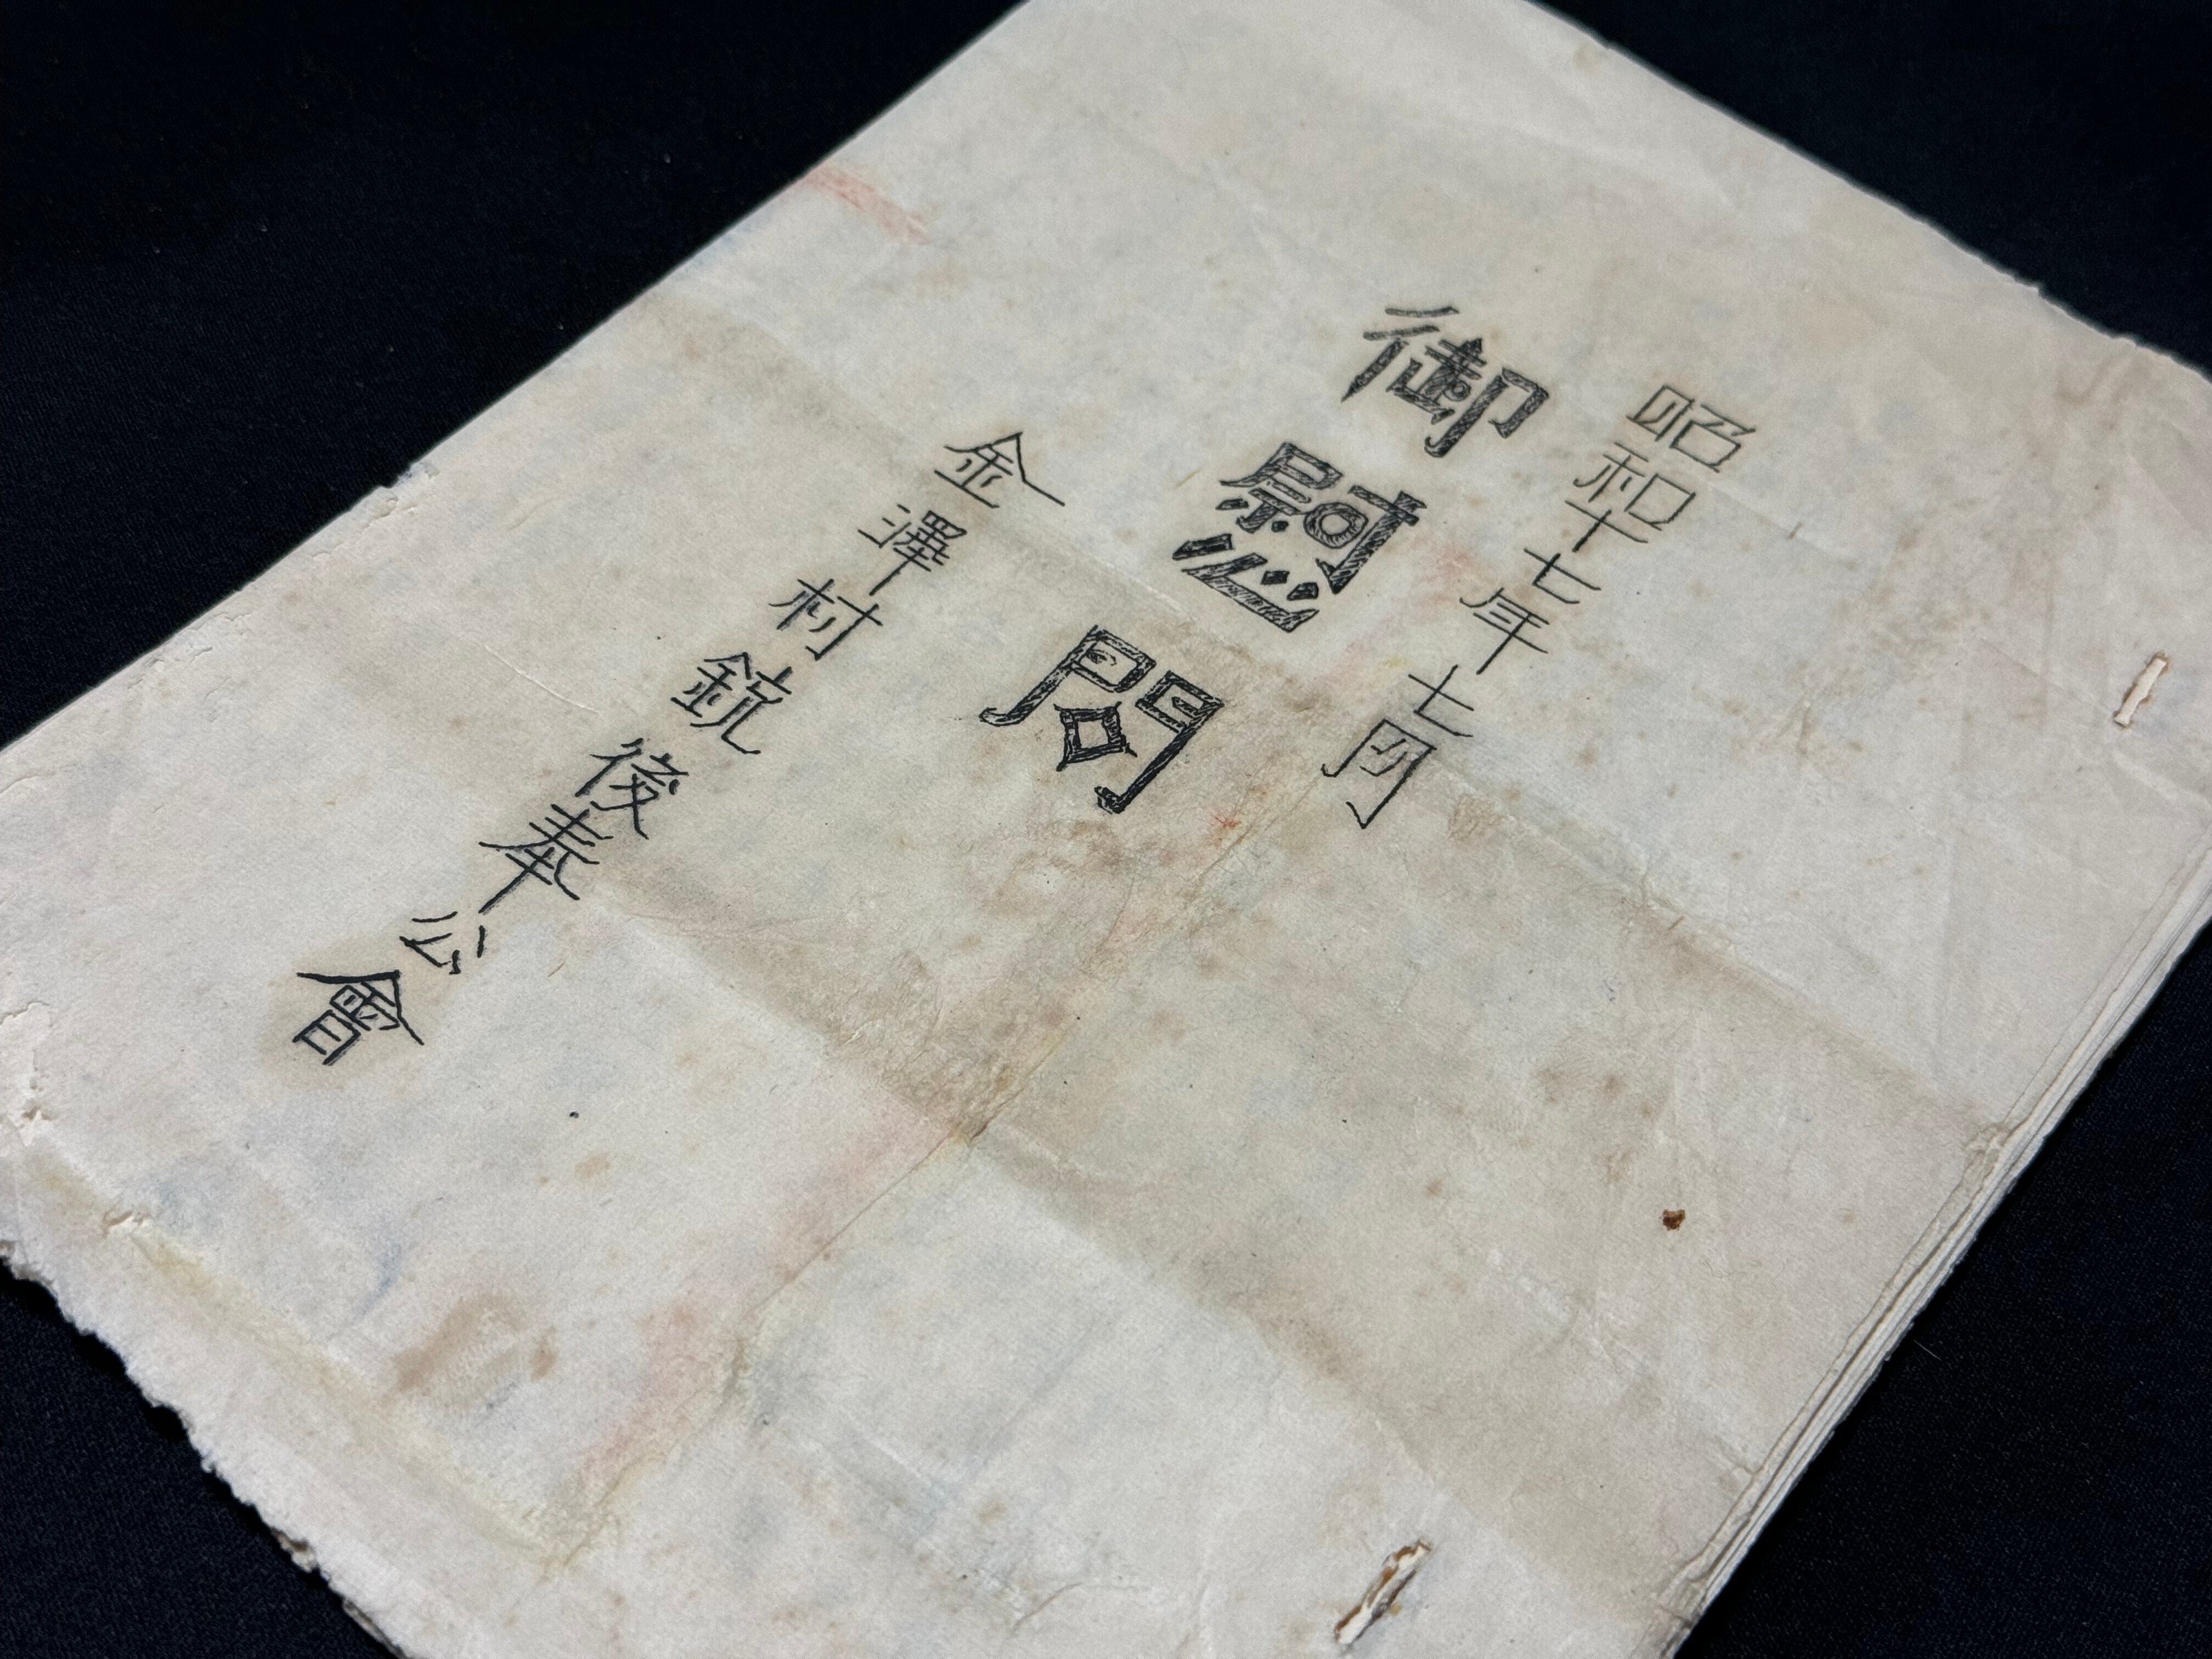 昭和十七年七月
御慰問
金澤村銃後奉公會